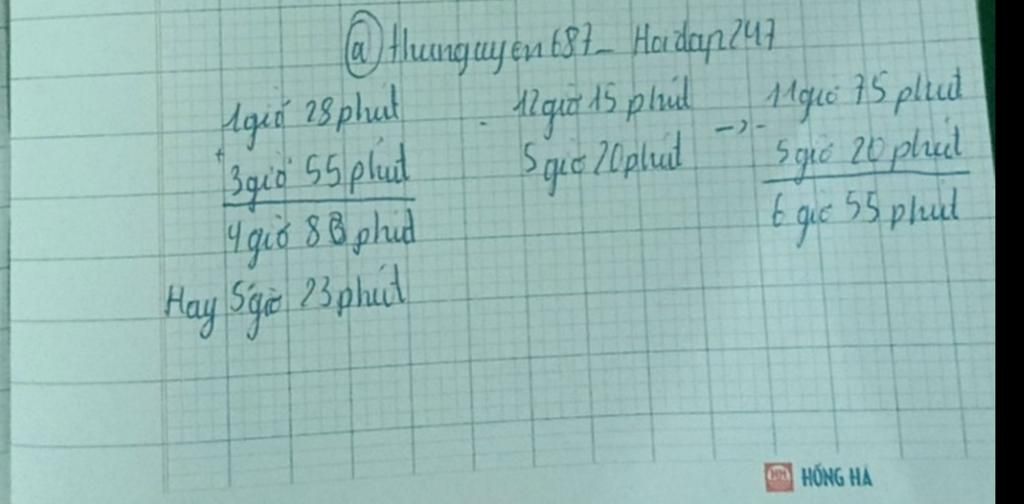 @ thunguyen687_ Hoidap247
1giờ 28phút
+
3giờ 55phút
4giờ 83phút
Hay 5giờ 23phút
- 12giờ 15 phút
5 giờ 20phút
->
- 11giờ 75 phút
5giờ 20 phút
6 giờ 55 phút
HM HỒNG HÀ